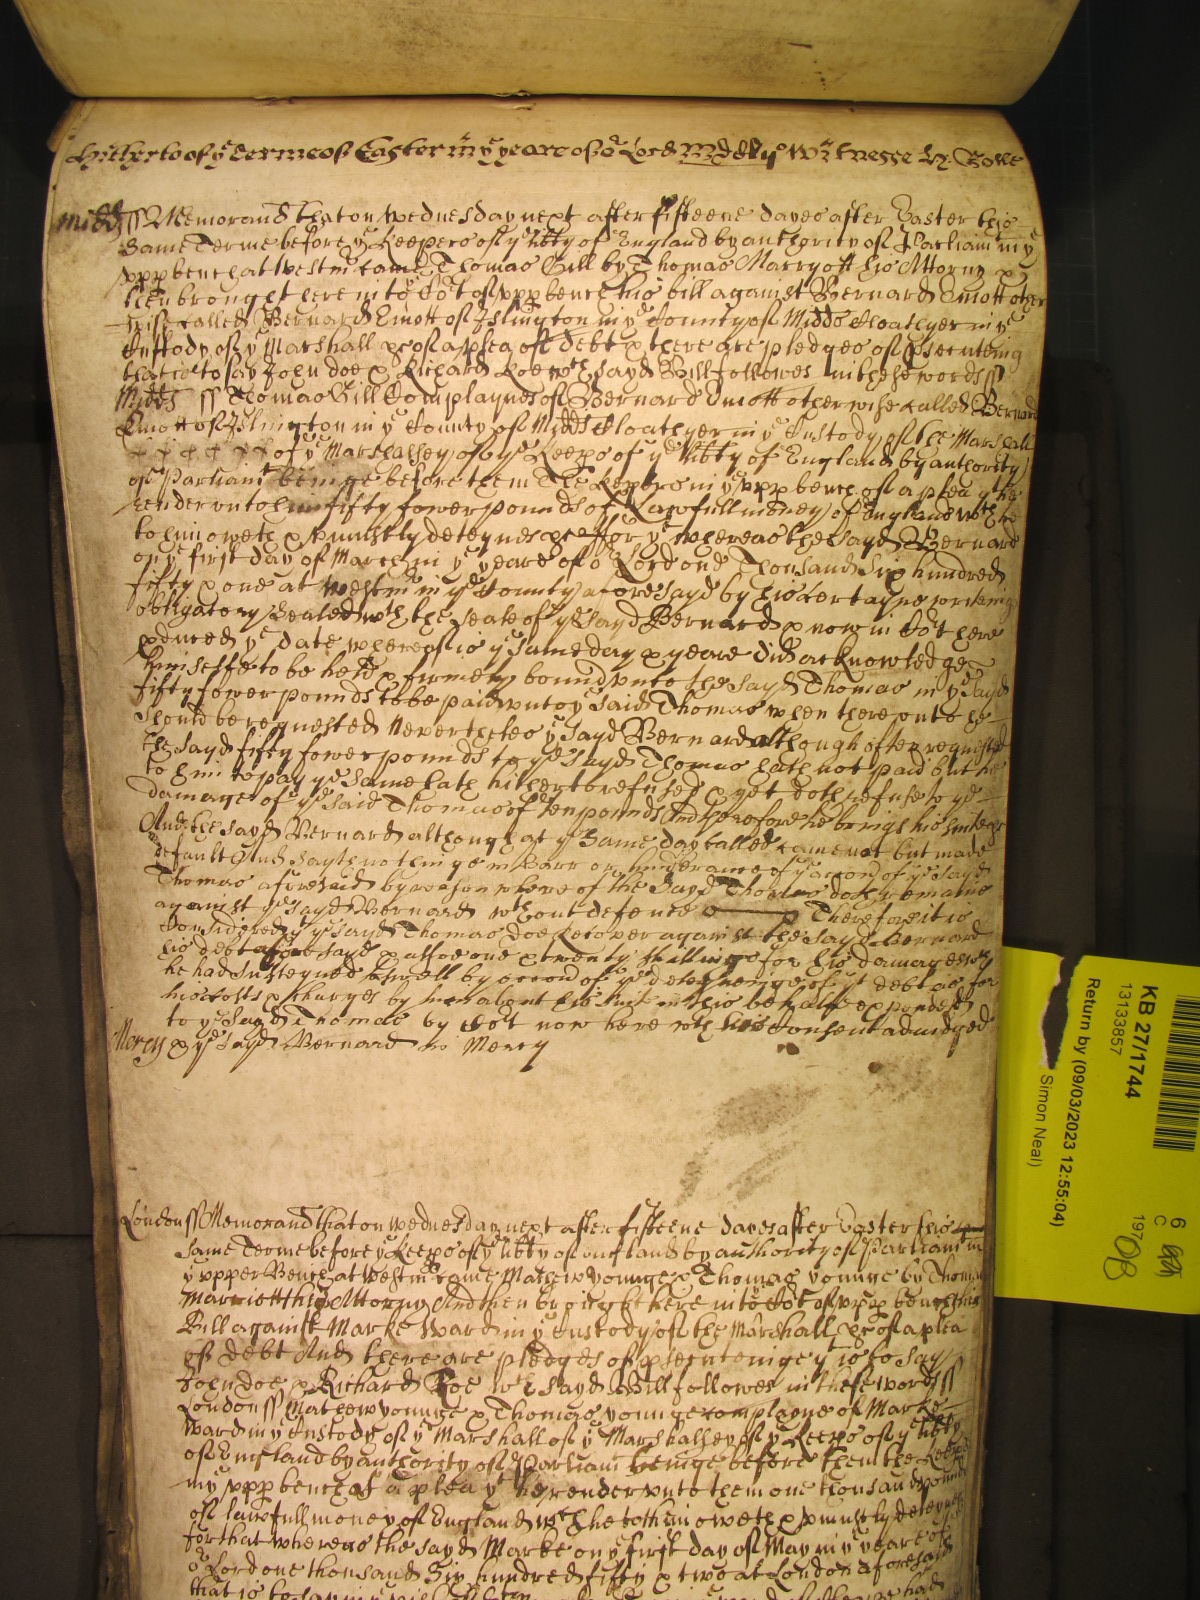 Hitherto of ye terme of Easter in ye yeare of or Lord Witnesse H: Rolle
Midds ss Memorand that on wednesday next after fifteene dayes after Easter this
same Terme before ye Keepers of ye libty of England by authority of Parliamt in ye
upp bench at Westmr came Thomas Gill by Thomas Marryott his Attorny &
then brought here into ye Cort of upp bench his bill against Bernard Emott other
wise called Bernard Emott of Islington in ye County of Midds Cloathyer in ye
Custody of ye Marshall &c of a plea of debt & there are pledges of psecuteing
that is to say John doe & Richard Roe wch sayd Bill followes in these words ss
Midds ss Thomas Gill Complaynes of Bernard Emott otherwise called Bernard
Emott of Islington in ye County of Midds Cloathyer in ye Custody of the Marshall
of ye Marshalsey of ye Keeps of ye libty of England by authority
of Parliamt beinge before them The Keepers in ye upp bench of a plea yt he
render unto him fifty fower pounds of Lawfull money of England wch he
to him oweth & uniustly deteynes &c ffor yt whereas the sayd Bernard
on ye first day of March in ye yeare of or Lord one Thousand Six hundred
fifty & one at Westmr in ye County aforesayd by his certayne writeing
obligatory Sealed wth the seale of ye sayd Bernard & now in Cort here
pduced ye date whereof is ye same day & yeare did acknowledge
himselfe to be held & firmely bound unto the sayd Thomas in ye sayd
fifty fower pounds to be paid unto ye said Thomas when thereunto he
should be requested Neverthelesse ye sayd Bernard although often requested
the sayd fifty fower pounds to ye sayd Thomas hath not paid but he
to him to pay ye same hath hitherto refused & yet doth refuse to ye
damage of ye said Thomas of ten pounds And therefore he brings his suite &c
And the sayd Bernard although at ye same day called came not but made
default And sayth nothinge in Barr or hinderance of ye accon of ye sayd
Thomas aforesaid by reason whereof the sayd Thomas doth remaine
against ye sayd Bernard wthout defence Therefore it is
Considered yt ye sayd Thomas doe recover against the sayd Bernard
his debt aforesayd & alsoe one & twenty shillings for his damages wch
he had susteyned aswell by occon of ye deteyneinge of yt debt as for
his costs & charges by him about his suite in this behalfe expended
to ye sayd Thomas by Cort now here wth his Consent adiudged
Mercy & ye sayd Bernard in Mercy
London ss Memorand that on wednesday next after fifteene dayes after Easter this
same Terme before ye Keeps of ye libty of England by authority of Parliamt in
ye upper Bench at Westmr came Mathew younge & Thomas younge by Thomas
Marriott his Attorny And then brought here into ye Cort of upp bench this
Bill against Marke Ward in ye Custody of the Marshall &c of a plea
of debt And there are pledges of psecuteinge yt is to say
John doe & Richard Roe wch sayd Bill followes in these words ss
London ss Mathew younge & Thomas younge complayne of Marke
Ward in ye Custody of ye Marshall of ye Marshalsey of ye Keeps of ye libty
of England by authority of Parliamt beinge before them the Keeps
in ye upp bench of a plea yt he render unto them one thousand pounds
of lawfull money of England wch he to them oweth & uniustly deteynes
for that whereas the sayd Marke on ye first day of May in ye yeare of
or Lord one thousand Six hundred fifty & two at London aforesaid
that is to say in
KB 27/1744
13133857
Return by (09/03/2023 12:55:04)
Simon Neal)
6
C
197